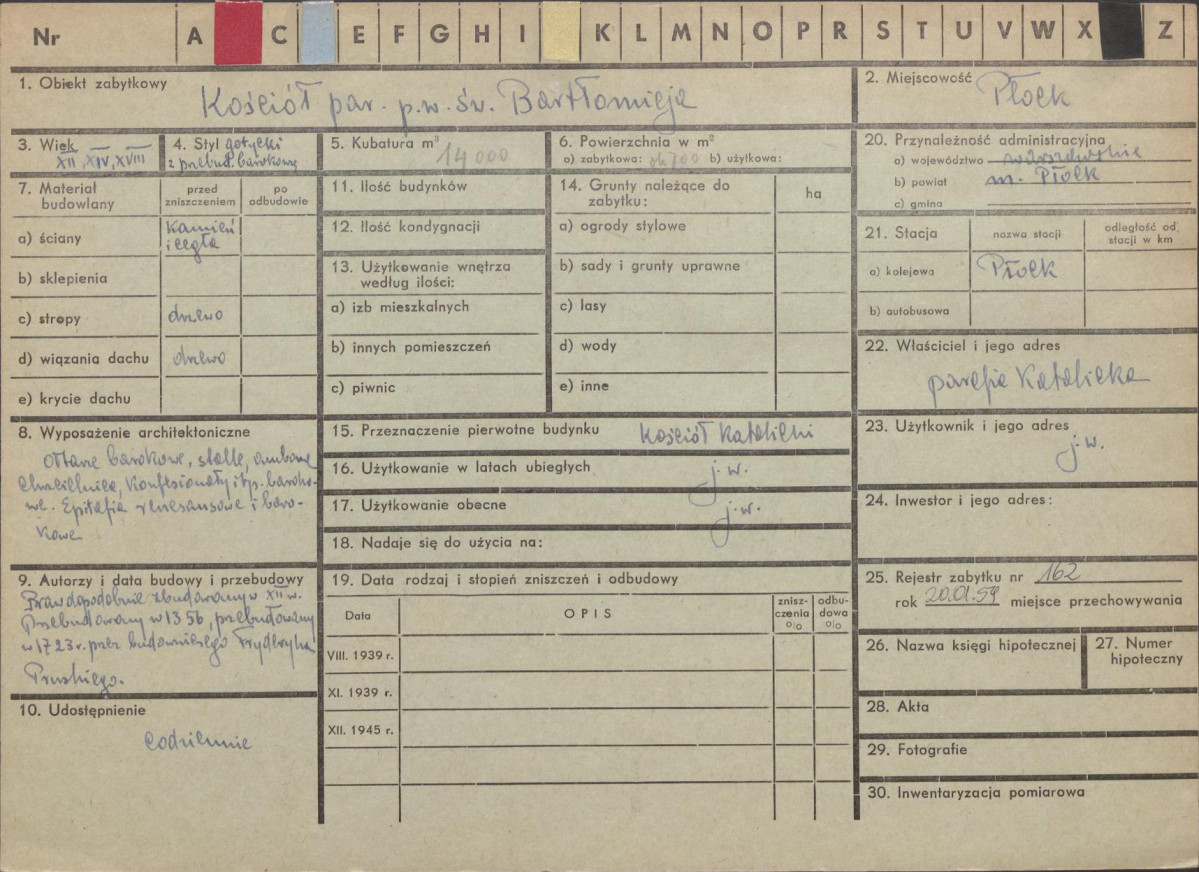 Nr A C E F G H I K L M N O P R S T U V W X Z
1. Obiekt zabytkowy
Kościół par. p.w. św. Bartłomieja
2. Miejscowość
Płock
3. Wiek
XII, XIV, XVIII
4. Styl gotycki
z przebud. barokową
5. Kubatura m³
14000
6. Powierzchnia w m²
a) zabytkowa: ok 700 b) użytkowa:
7. Materiał budowlany
przed zniszczeniem
po odbudowie
a) ściany
kamień
i cegła
b) sklepienia
c) stropy
drzewo
d) wiązania dachu
drzewo
e) krycie dachu
8. Wyposażenie architektoniczne
Ołtarze barokowe, stalle, ambona
chrzcielnica, konfesjonały i t.p. baroko-
we. Epitafia renesansowe i baro-
kowe
9. Autorzy i data budowy i przebudowy
Prawdopodobnie zbudowany w XII w.
Przebudowany w 1356, przebudowany
w 1723 r. przez budowniczego Fryderyka
Pruskiego.
10. Udostępnienie
codziennie
11. Ilość budynków
12. Ilość kondygnacji
13. Użytkowanie wnętrza
według ilości:
a) izb mieszkalnych
b) innych pomieszczeń
c) piwnic
14. Grunty należące do
zabytku:
ha
a) ogrody stylowe
b) sady i grunty uprawne
c) lasy
d) wody
e) inne
15. Przeznaczenie pierwotne budynku kościół katolicki
16. Użytkowanie w latach ubiegłych j.w.
17. Użytkowanie obecne j.w.
18. Nadaje się do użycia na:
19. Data rodzaj i stopień zniszczeń i odbudowy
Data
OPIS
znisz-
czenia
%
odbu-
dowa
%
VIII. 1939 r.
XI. 1939 r.
XII. 1945 r.
20. Przynależność administracyjna
a) województwo warszawskie
b) powiat m. Płock
c) gmina
21. Stacja
nazwa stacji
odległość od
stacji w km
a) kolejowa Płock
b) autobusowa
22. Właściciel i jego adres
parafia katolicka
23. Użytkownik i jego adres
j.w.
24. Inwestor i jego adres:
25. Rejestr zabytku nr 162
rok 20.01.59 miejsce przechowywania
26. Nazwa księgi hipotecznej
27. Numer
hipoteczny
28. Akta
29. Fotografie
30. Inwentaryzacja pomiarowa